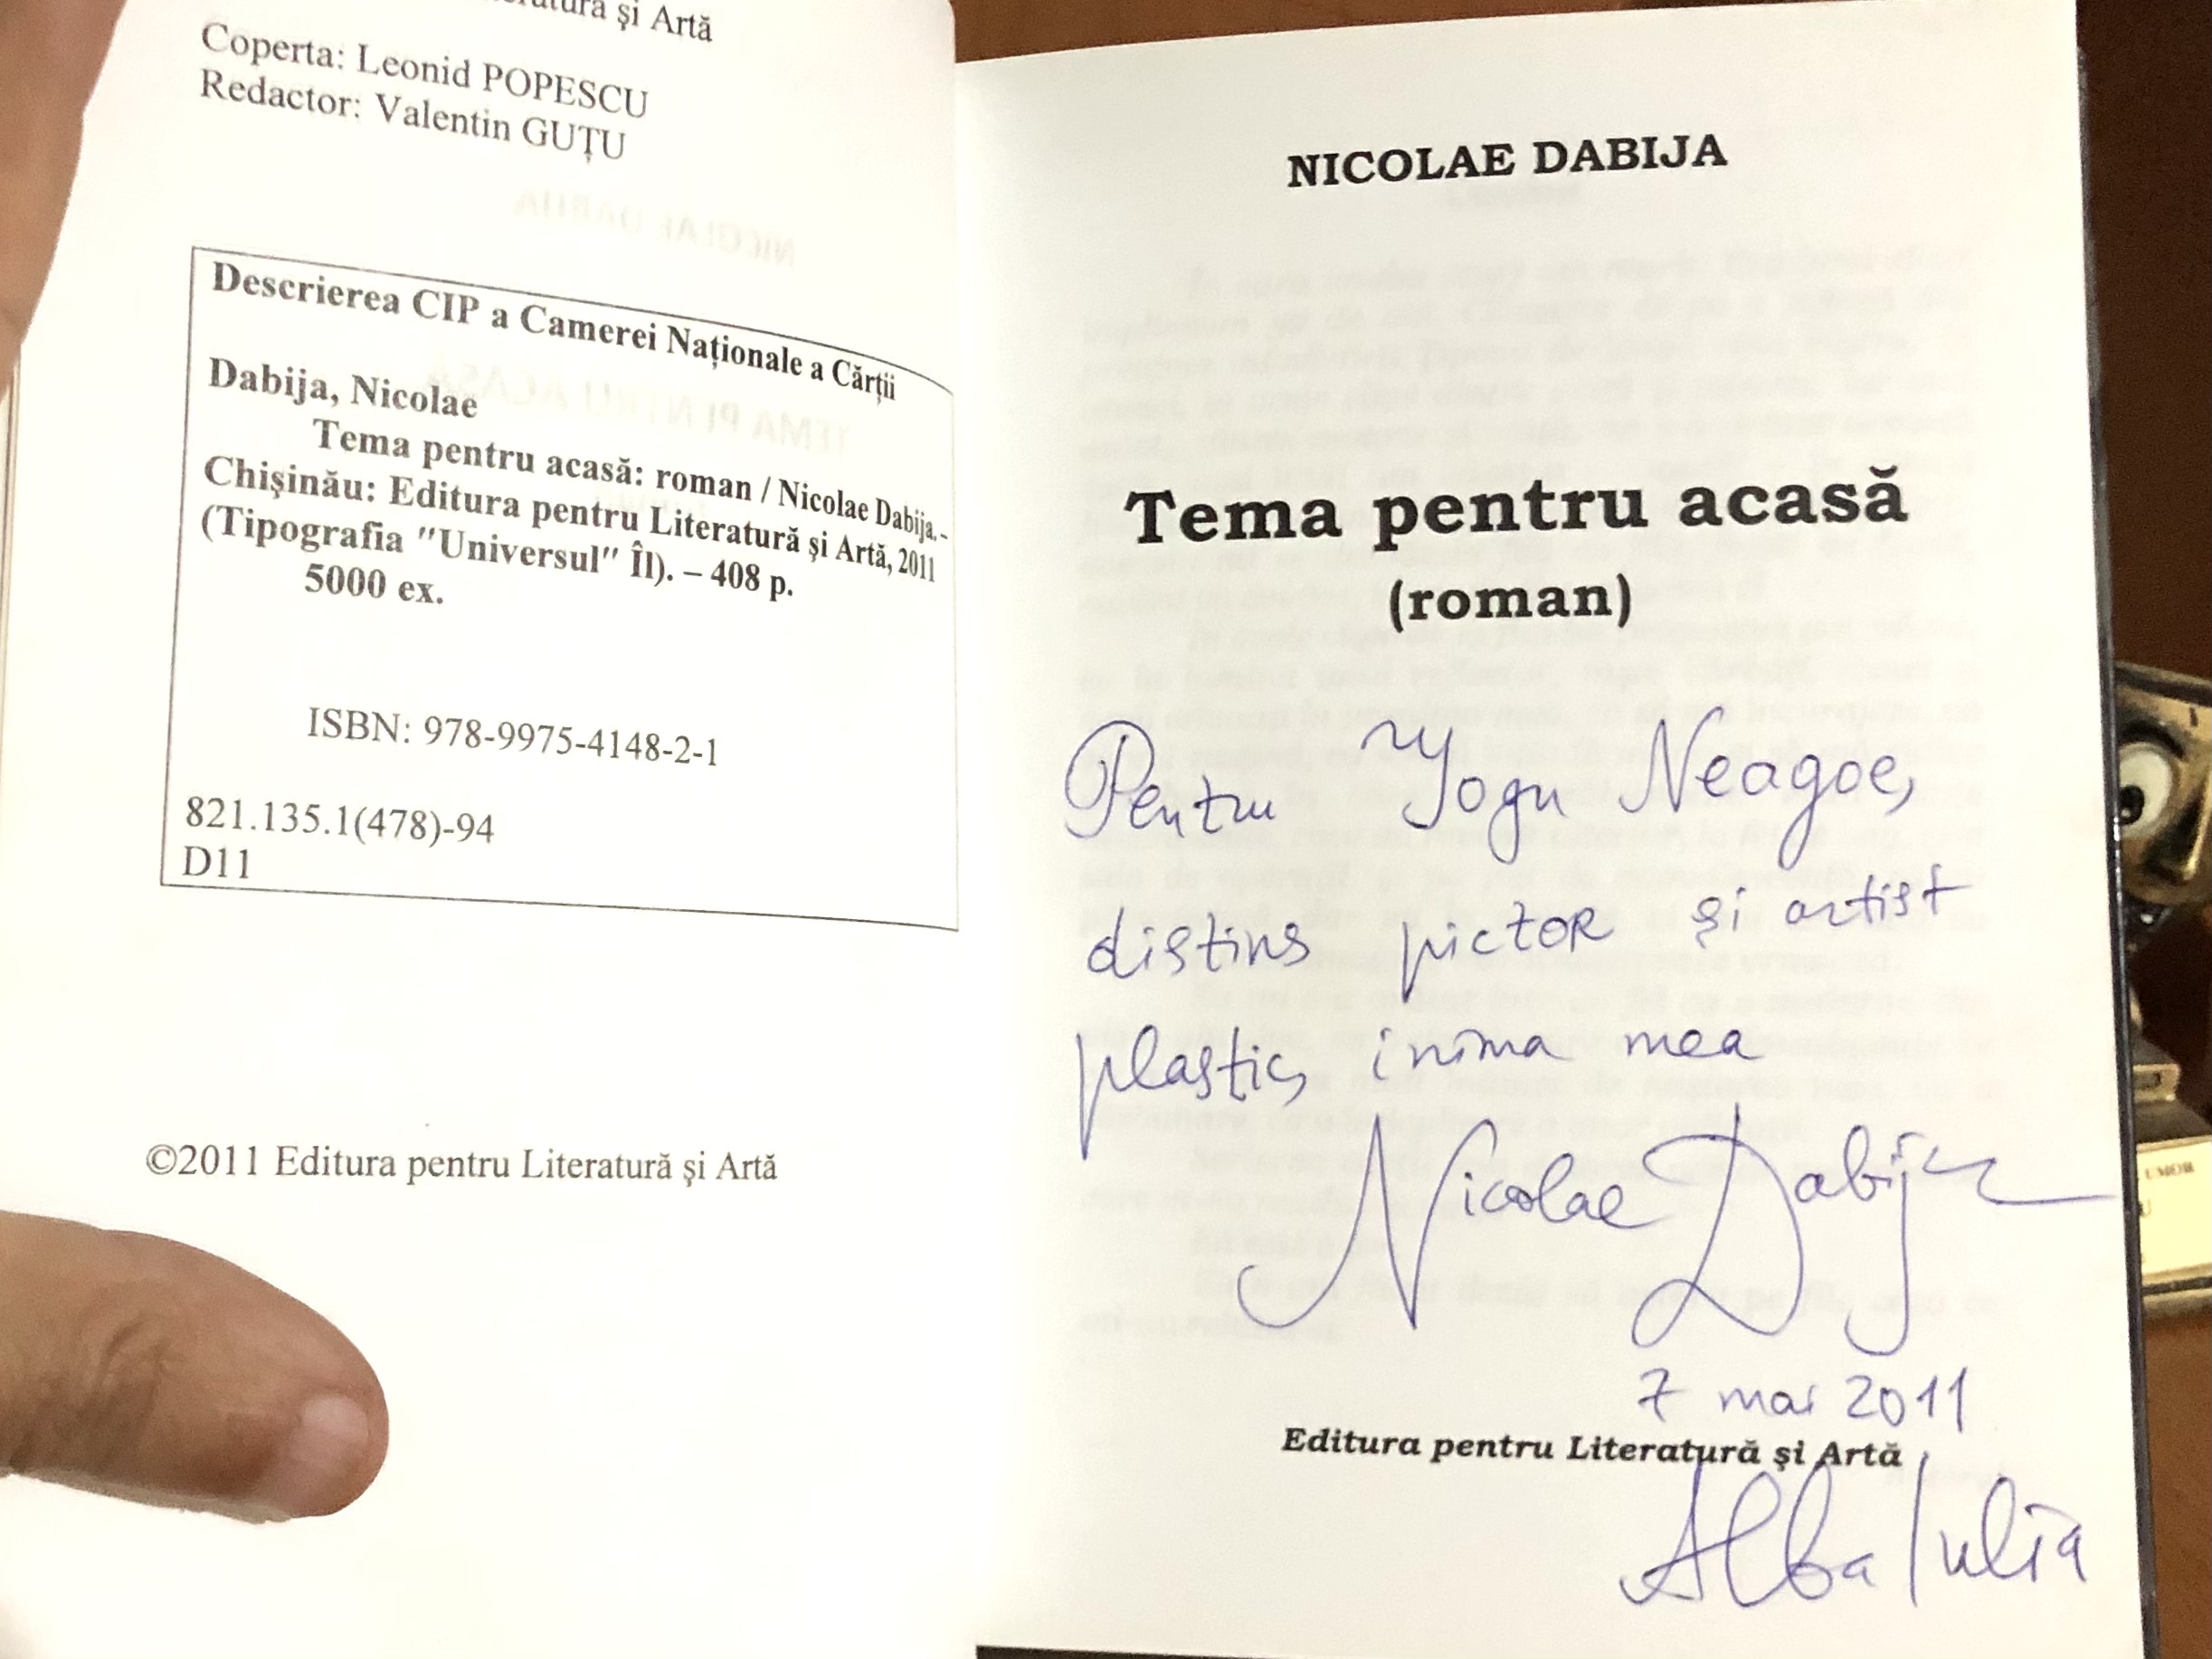 și Artă
Coperta: Leonid POPESCU
Redactor: Valentin GUȚU
Descrierea CIP a Camerei Naționale a Cărții
Dabija, Nicolae
Tema pentru acasă: roman / Nicolae Dabija. -
Chișinău: Editura pentru Literatură și Artă, 2011
(Tipografia "Universul" ÎI). – 408 p.
5000 ex.
ISBN: 978-9975-4148-2-1
821.135.1(478)-94
D11
©2011 Editura pentru Literatură și Artă
NICOLAE DABIJA
Tema pentru acasă
(roman)
Pentru Yogu Neagoe,
distins pictor și artist
plastic, inima mea
Nicolae Dabija
7 mai 2011
Editura pentru Literatură și Artă
Alba Iulia